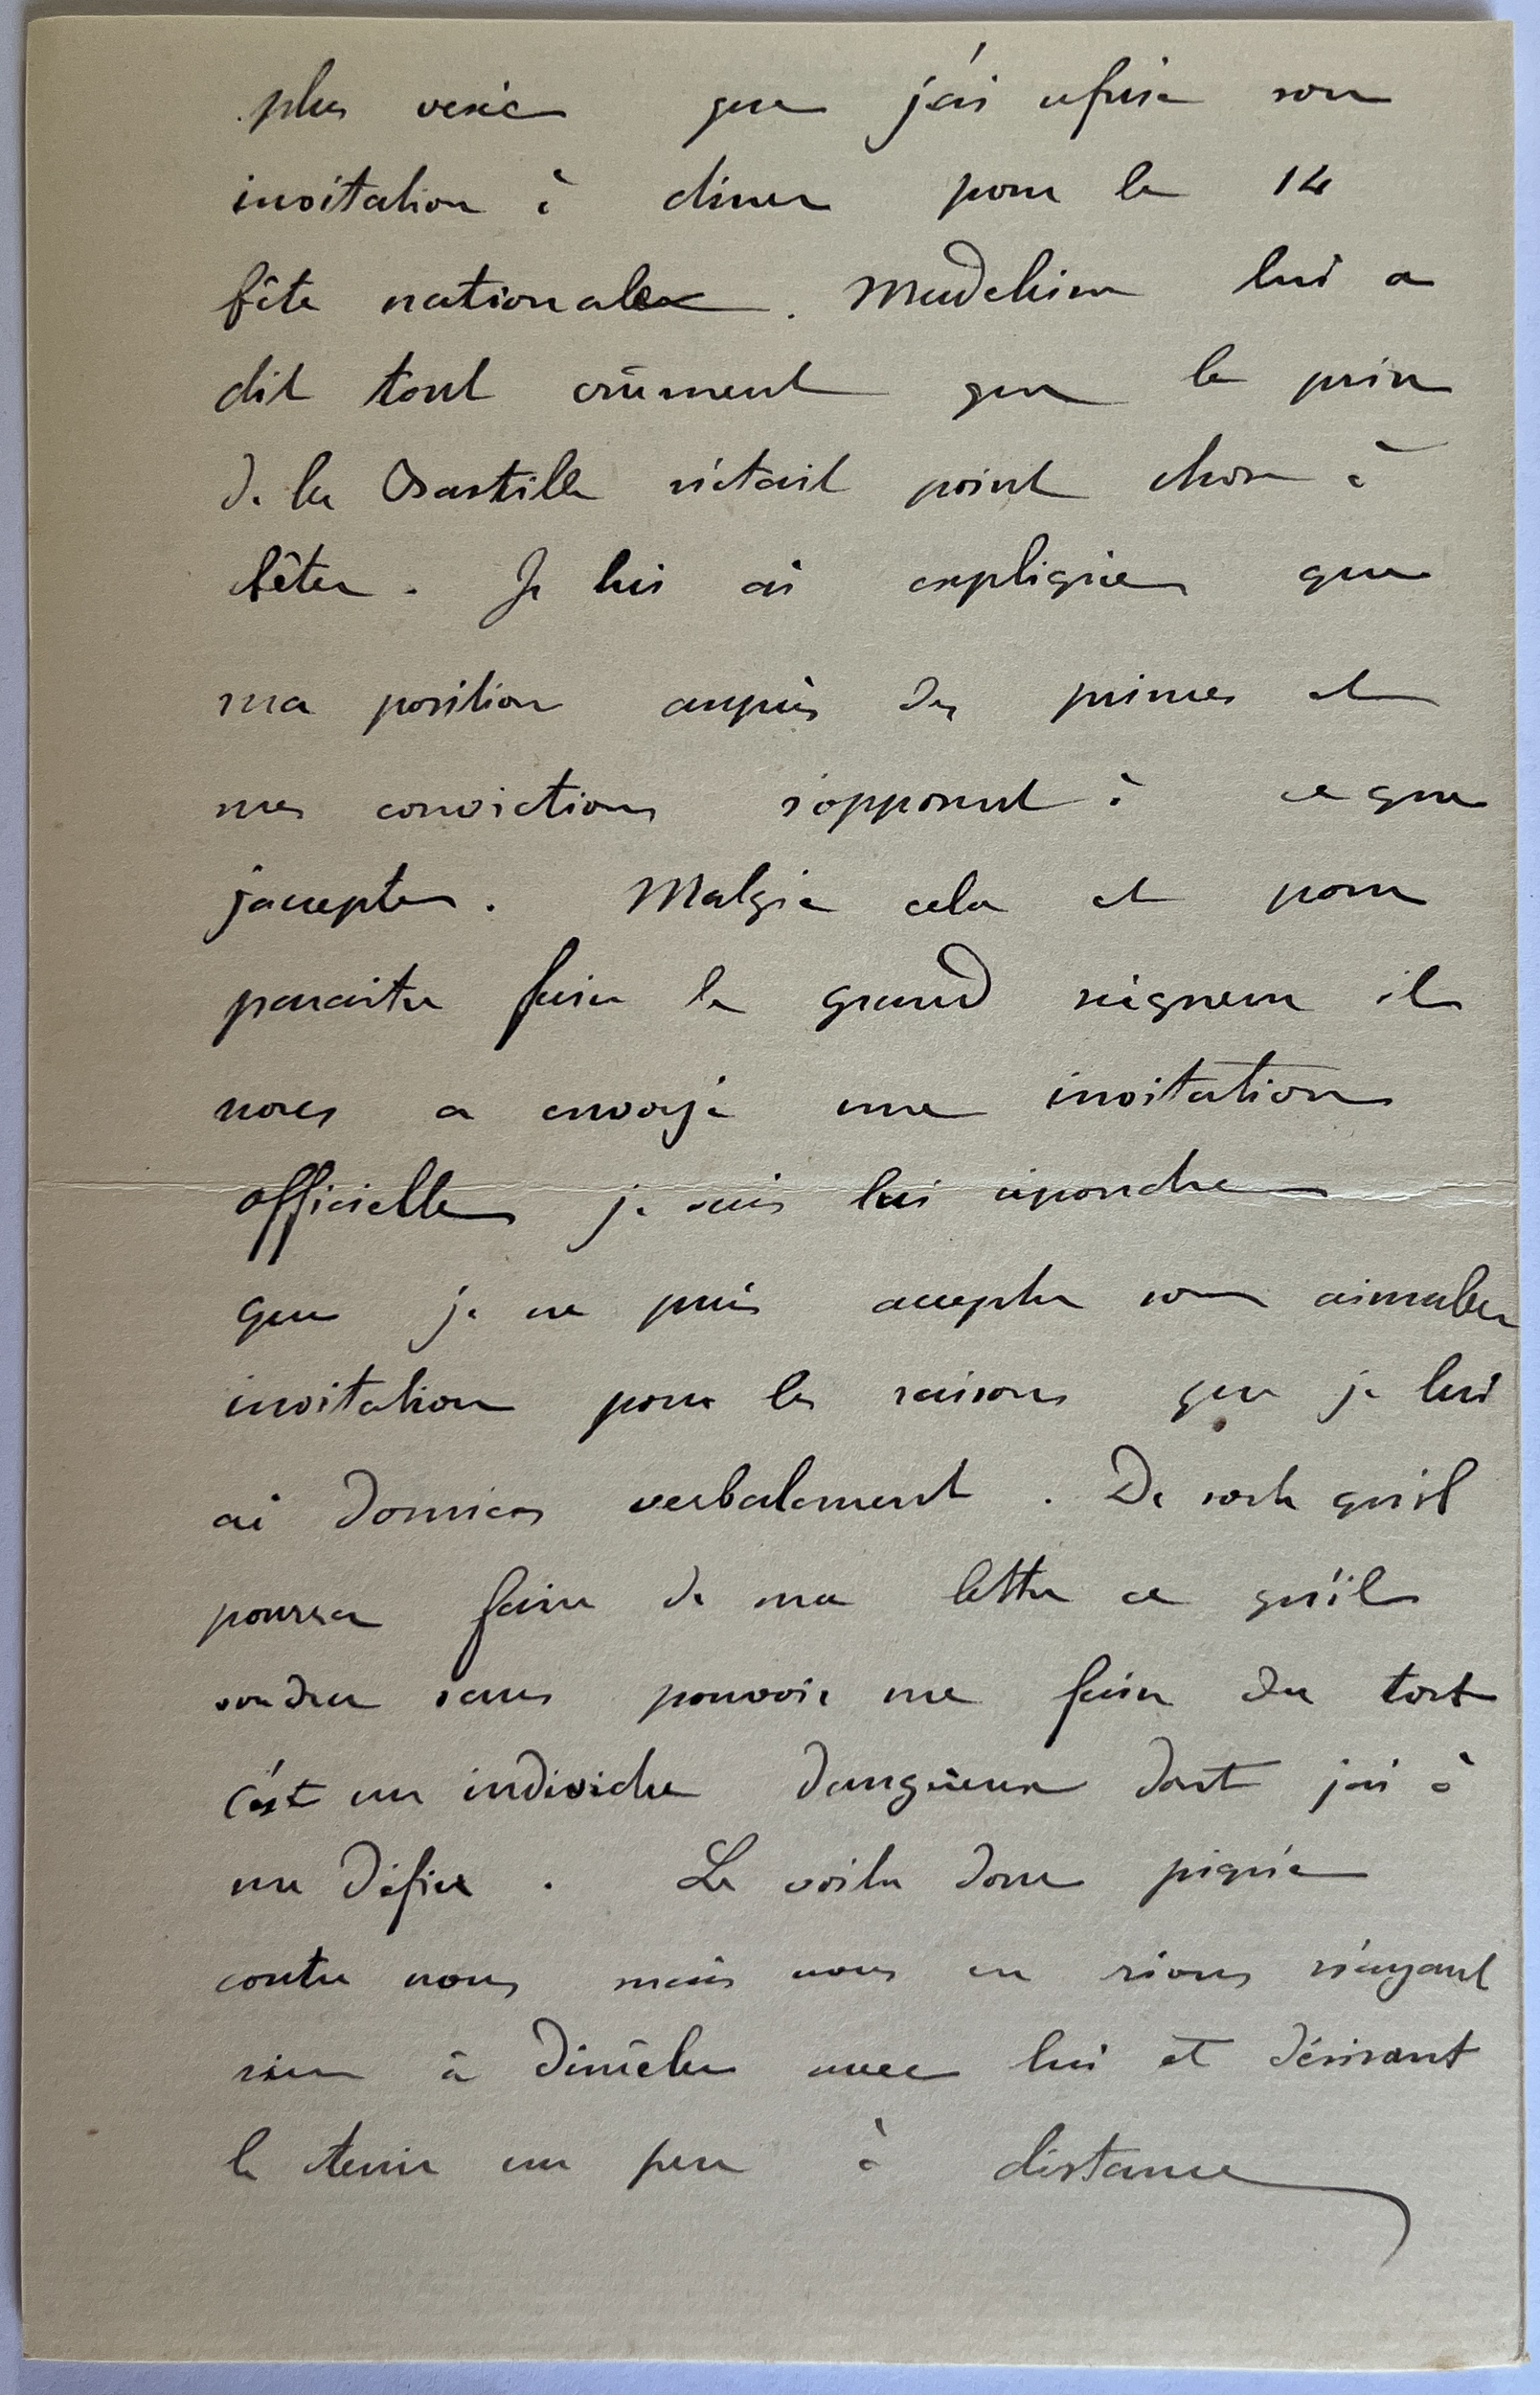 plus vexé que j'ai refusé son
invitation à diner pour le 14
fête nationale. Madeleine lui a
dit tout crûment que la prise
de la Bastille n'était point chose à
fêter. Je lui ai expliqué que
ma position auprès des princes et
mes convictions s'opposent à ce que
j'accepte. Malgré cela et pour
paraitre faire le grand seigneur il
nous a envoyé une invitation
officielle je vais lui répondre
que je ne puis accepter son aimable
invitation pour les raisons que je lui
ai données verbalement. De sorte qu'il
pourra faire de ma lettre ce qu'il
voudra sans pouvoir me faire du tort
c'est un individu dangereux dont j'ai à
me défier. Le voila donc piqué
contre nous mais nous en rions n'ayant
rien à démêler avec lui et désirant
le tenir un peu à distance